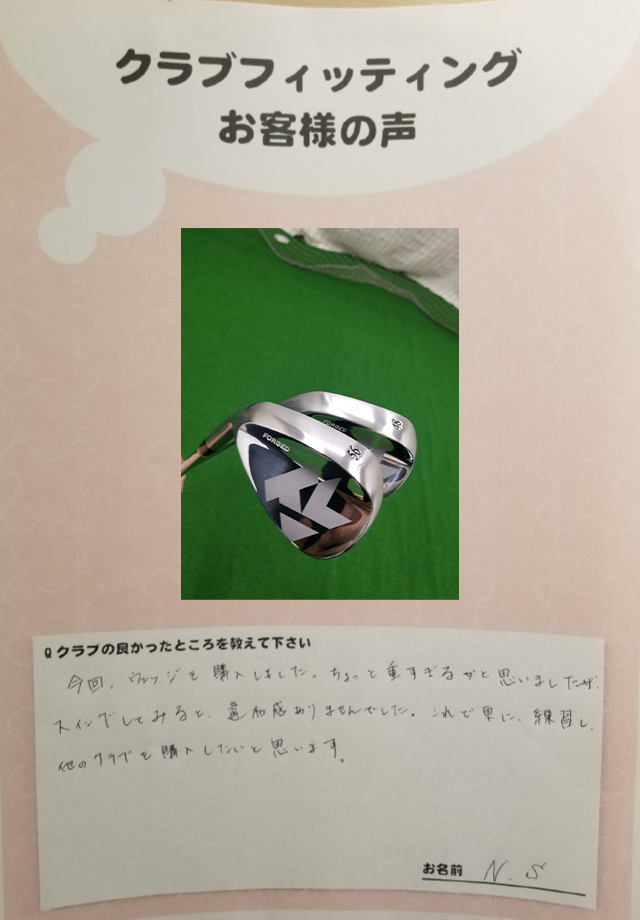 クラブフィッティング
お客様の声
FORGED
FORGED
56
Q クラブの良かったところを教えて下さい
今回、ウェッジを購入しました。ちょっと重すぎるかと思いましたが、
スイングしてみると、違和感ありませんでした。これで更に、練習し、
他のクラブを購入したいと思います。
お名前 N.S